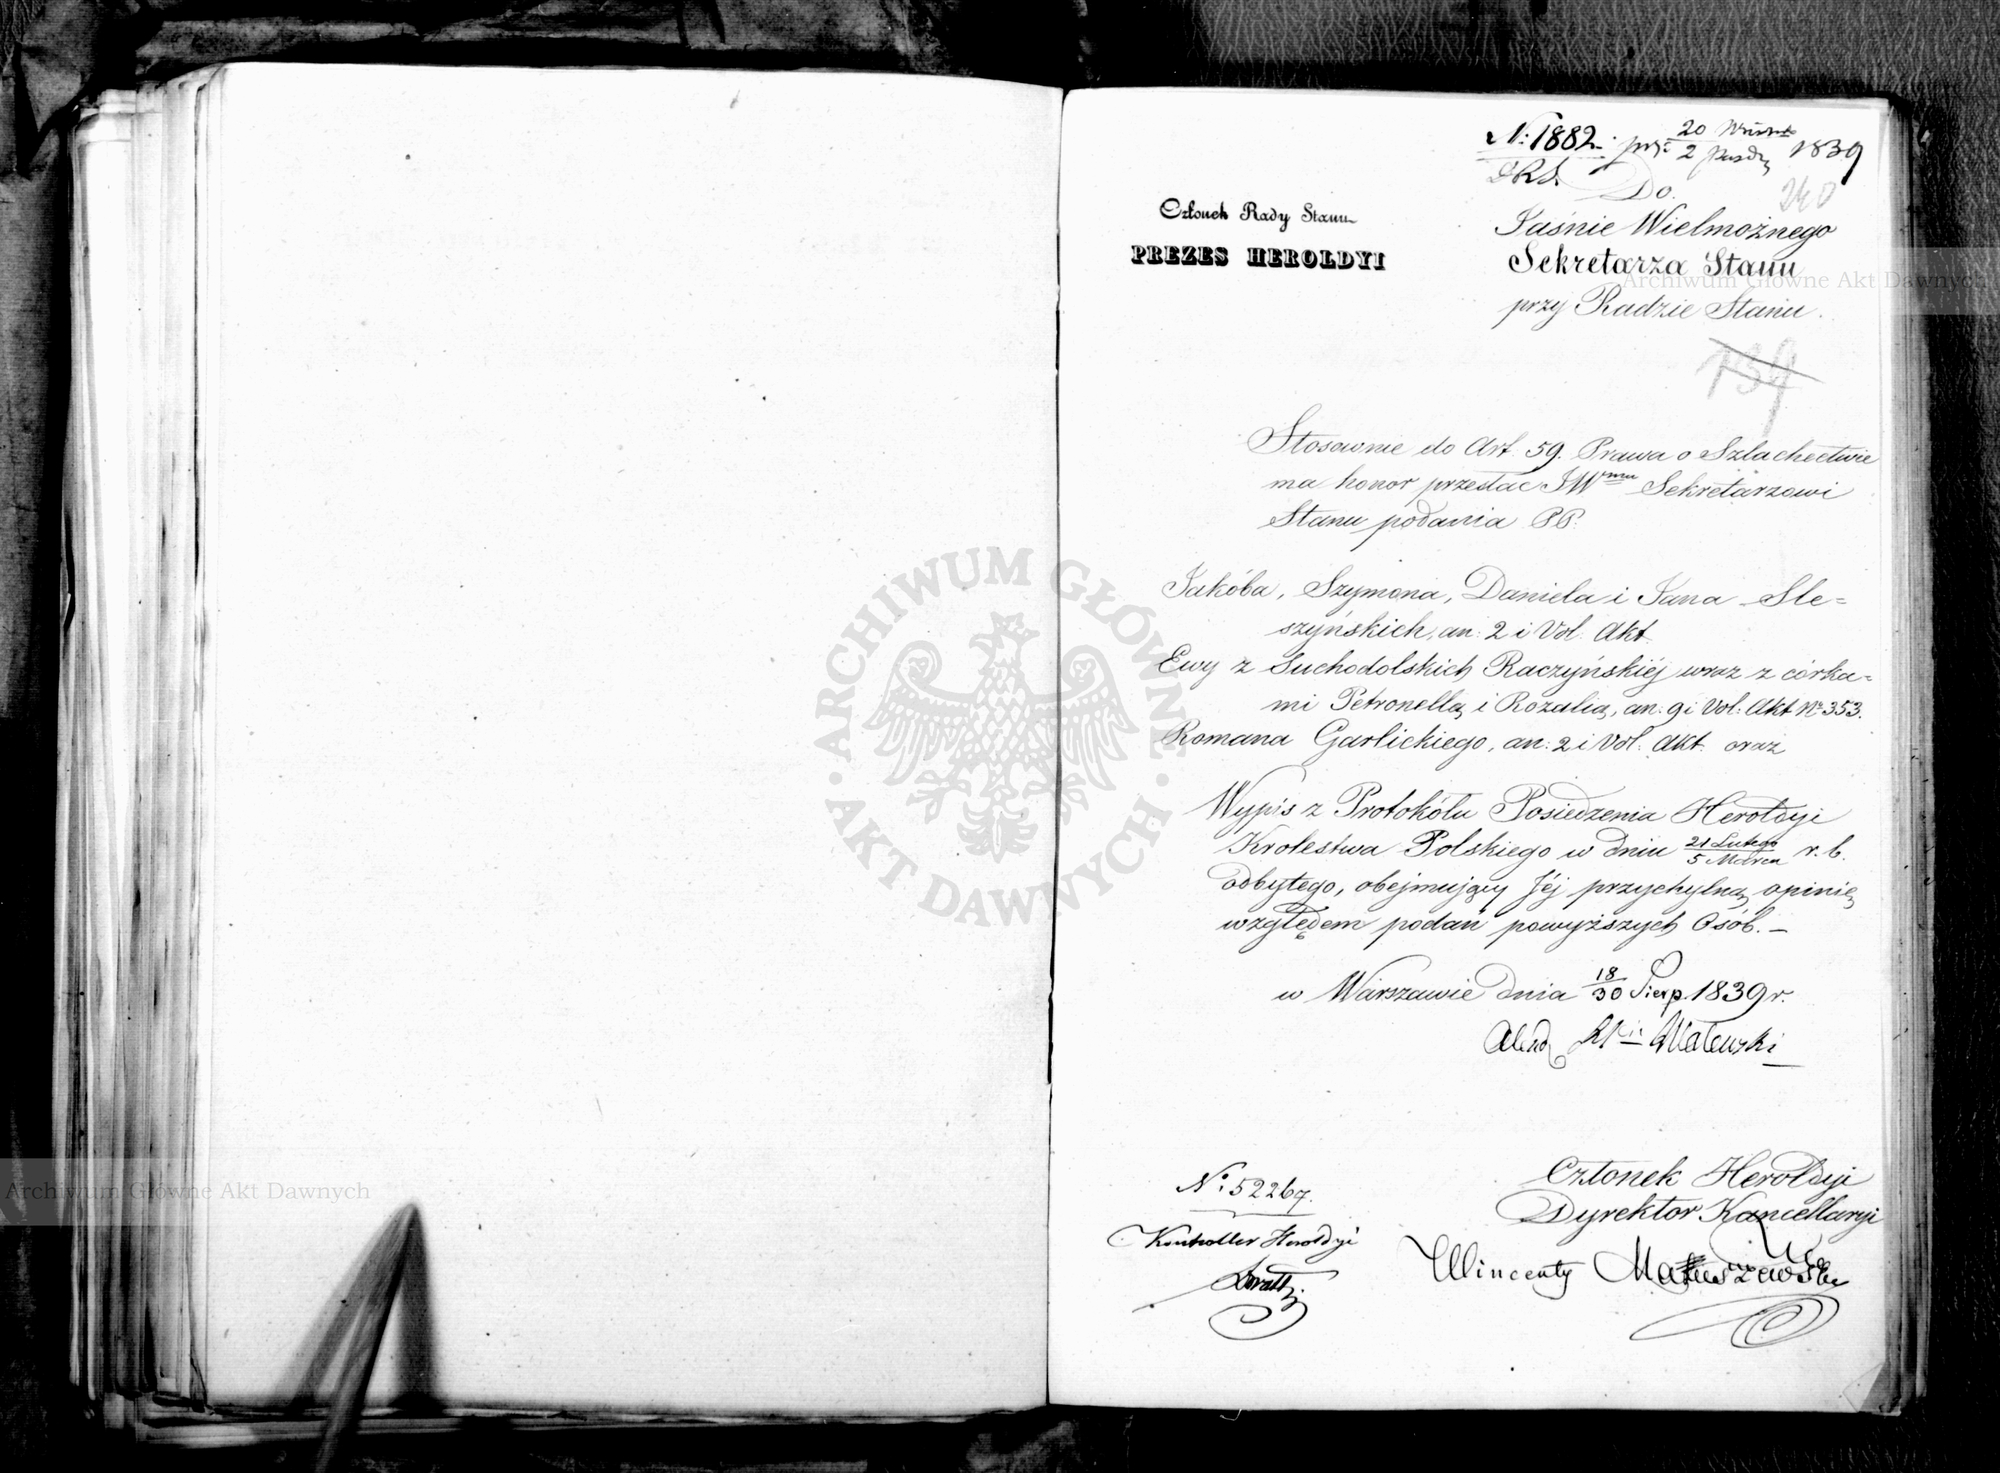 N: 1882. prz: 20 Wrześ. / 2 Paźdz. 1839
DRS.
240
Członek Rady Stanu
PREZES HEROLDYI
Do
Jaśnie Wielmożnego
Sekretarza Stanu
przy Radzie Stanu.
139
Stosownie do Art. 59. Prawa o Szlachectwie
ma honor przesłać JWmu Sekretarzowi
Stanu podania PP.
Jakóba, Szymona, Daniela i Jana Sle=
szyńskich, an: 2 i Vol. Akt
Ewy z Suchodolskich Raczyńskiéj wraz z córka=
mi Petronellą i Rozalią, an: 9 i Vol: Akt No 353.
Romana Garlickiego, an: 2 i Vol: Akt. oraz
Wypis z Protokółu Posiedzenia Heroldyi
Krolestwa Polskiego w dniu 21 Lutego / 5 Marca r. b.
odbytego, obejmujący Jéj przychylną opinię
względem podań powyższych Osób. —
w Warszawie dnia 18/30 Sierp. 1839 r.
Alexd Walewski
No 52267.
Kontroller Heroldyi
Członek Heroldyi
Dyrektor Kancellaryi
Wincenty Matuszewski
ARCHIWUM GŁÓWNE · AKT DAWNYCH ·
Archiwum Główne Akt Dawnych
Archiwum Główne Akt Dawnych